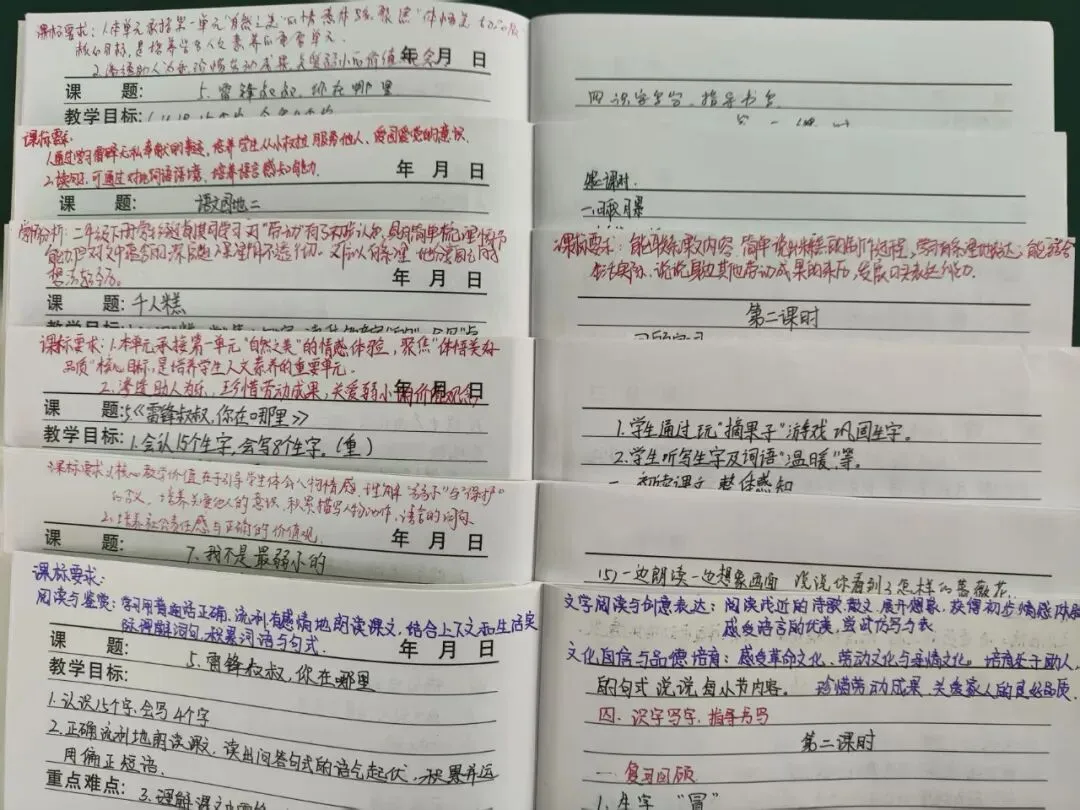 课标要求：1.本单元承接第一单元"自然之美"的情感体验，聚焦"体悟美好品质"
核心目标，是培养学生人文素养的重要单元。
2.渗透助人为乐，珍惜劳动成果，关爱弱小的价值观念
年 月 日
课 题：5.雷锋叔叔，你在哪里
教学目标：
四.识字写字，指导书写
课标要求：
1.通过学习雷锋无私奉献的事迹，培养学生从小树立服务他人、爱国爱党的意识。
2.读句子，可通过对比词语语境，培养语言感知能力。
年 月 日
课 题：语文园地二
第二课时.
学情分析：二年级下册学生
课 题：千人糕
课标要求：能联系课文内容，简单说出米糕的制作过程，
生活实际，说说身边其他劳动成果的来历，发展口头表达能力。
第二课时
课标要求：1.本单元承接第一单元"自然之美"的情感体验，聚焦"体悟美好
品质"核心目标，是培养学生人文素养的重要单元。
2.渗透助人为乐，珍惜劳动成果，关爱弱小的价值观念
年 月 日
课 题：5《雷锋叔叔，你在哪里》
教学目标：1.会认15个生字，会写8个生字。（重）
1.学生通过玩"摘果子"游戏巩固生字。
2.学生听写生字及词语"温暖"等。
一 初读课文，整体感知
课标要求：1.核心教学价值在于引导学生体会人物情感，理解"弱小"与"保护"
的含义，培养关爱他人的意识，积累描写人物动作、语言的词句
2.培养社会责任感与正确的价值观.
年 月 日
课 题：7.我不是最弱小的
(5)一边朗读一边想象画面 说说你看到了怎样的蔷薇花
课标要求：
阅读与鉴赏：学习用普通话正确、流利、有感情地朗读课文，结合上下文和生活实
际理解词句，积累词语与句式.
年 月 日
课 题：5.雷锋叔叔，你在哪里
教学目标：
1.认识15个字，会写4个字
2.正确流利地朗读课文，读出问答句式的语气起伏，积累并运
用偏正短语.
重点难点：3.理解课文
文学阅读与创意表达：阅读浅近的诗歌、散文，展开想象，获得初步情感体验
感受语言的优美，尝试仿写句式
文化自信与品德培育：感受革命文化、劳动文化与亲情文化，培育乐于助人，
的句式说说每小节内容。 珍惜劳动成果，关爱家人的良好品质.
四.识字写字，指导书写
第二课时
一 复习回顾
1.生字 "冒"